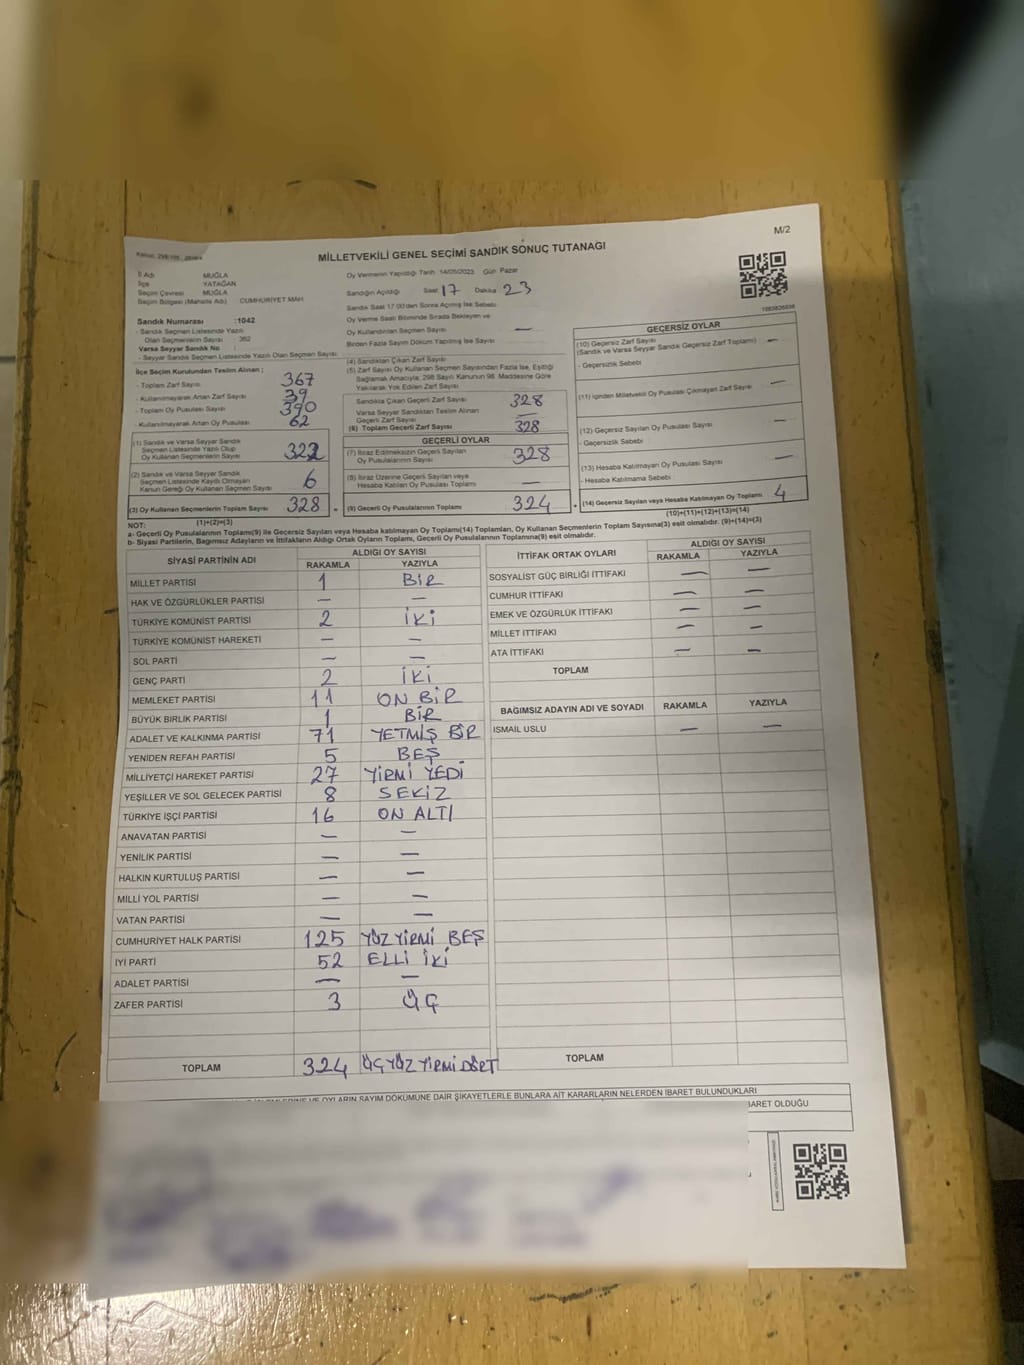 M/2
MİLLETVEKİLİ GENEL SEÇİMİ SANDIK SONUÇ TUTANAĞI
İl Adı MUĞLA
İlçe YATAĞAN
Seçim Çevresi MUĞLA
Seçim Bölgesi (Mahalle Adı) CUMHURİYET MAH.
Sandık Numarası :1042
- Sandık Seçmen Listesinde Yazılı
Olan Seçmenlerin Sayısı : 362
Varsa Seyyar Sandık No :
- Seyyar Sandık Seçmen Listesinde Yazılı Olan Seçmen Sayısı
Oy Vermenin Yapıldığı Tarih 14/05/2023 Gün Pazar
Sandığın Açıldığı Saat 17 Dakika 23
Sandık Saat 17:00'den Sonra Açılmış İse Sebebi
Oy Verme Saati Bitiminde Sırada Bekleyen ve
Oy Kullandırılan Seçmen Sayısı —
Birden Fazla Sayım Döküm Yapılmış İse Sayısı
İlçe Seçim Kurulundan Teslim Alınan ;
- Toplam Zarf Sayısı 367
- Kullanılmayarak Artan Zarf Sayısı 39
- Toplam Oy Pusulası Sayısı 390
- Kullanılmayarak Artan Oy Pusulası 62
(1) Sandık ve Varsa Seyyar Sandık
Seçmen Listesinde Yazılı Olup
Oy Kullanan Seçmenlerin Sayısı 322
(2) Sandık ve Varsa Seyyar Sandık
Seçmen Listesinde Kayıtlı Olmayan
Kanun Gereği Oy Kullanan Seçmen Sayısı 6
(3) Oy Kullanan Seçmenlerin Toplam Sayısı 328 =
(1)+(2)=(3)
(4) Sandıktan Çıkan Zarf Sayısı
(5) Zarf Sayısı Oy Kullanan Seçmen Sayısından Fazla İse, Eşitliği
Sağlamak Amacıyla; 298 Sayılı Kanunun 98. Maddesine Göre
Yakılarak Yok Edilen Zarf Sayısı
Sandıkta Çıkan Geçerli Zarf Sayısı 328
Varsa Seyyar Sandıktan Teslim Alınan
Geçerli Zarf Sayısı —
(6) Toplam Geçerli Zarf Sayısı 328
GEÇERLİ OYLAR
(7) İtiraz Edilmeksizin Geçerli Sayılan
Oy Pusulalarının Sayısı 328
(8) İtiraz Üzerine Geçerli Sayılan veya
Hesaba Katılan Oy Pusulası Toplamı —
(9) Geçerli Oy Pusulalarının Toplamı 324 +
GEÇERSİZ OYLAR
(10) Geçersiz Zarf Sayısı
(Sandık ve Varsa Seyyar Sandık Geçersiz Zarf Toplamı) —
- Geçersizlik Sebebi
(11) İçinden Milletvekili Oy Pusulası Çıkmayan Zarf Sayısı —
(12) Geçersiz Sayılan Oy Pusulası Sayısı —
- Geçersizlik Sebebi
(13) Hesaba Katılmayan Oy Pusulası Sayısı —
- Hesaba Katılmama Sebebi
(14) Geçersiz Sayılan veya Hesaba Katılmayan Oy Toplamı 4
(10)+(11)+(12)+(13)=(14)
NOT:
a- Geçerli Oy Pusulalarının Toplamı(9) ile Geçersiz Sayılan veya Hesaba katılmayan Oy Toplamı(14) Toplamları, Oy Kullanan Seçmenlerin Toplam Sayısına(3) eşit olmalıdır. (9)+(14)=(3)
b- Siyasi Partilerin, Bağımsız Adayların ve İttifakların Aldığı Ortak Oyların Toplamı, Geçerli Oy Pusulalarının Toplamına(9) eşit olmalıdır.
SİYASİ PARTİNİN ADI ALDIĞI OY SAYISI
RAKAMLA YAZIYLA
MİLLET PARTİSİ 1 BİR
HAK VE ÖZGÜRLÜKLER PARTİSİ — —
TÜRKİYE KOMÜNİST PARTİSİ 2 İKİ
TÜRKİYE KOMÜNİST HAREKETİ — —
SOL PARTİ — —
GENÇ PARTİ 2 İKİ
MEMLEKET PARTİSİ 11 ON BİR
BÜYÜK BİRLİK PARTİSİ 1 BİR
ADALET VE KALKINMA PARTİSİ 71 YETMİŞ BİR
YENİDEN REFAH PARTİSİ 5 BEŞ
MİLLİYETÇİ HAREKET PARTİSİ 27 YİRMİ YEDİ
YEŞİLLER VE SOL GELECEK PARTİSİ 8 SEKİZ
TÜRKİYE İŞÇİ PARTİSİ 16 ON ALTI
ANAVATAN PARTİSİ — —
YENİLİK PARTİSİ — —
HALKIN KURTULUŞ PARTİSİ — —
MİLLİ YOL PARTİSİ — —
VATAN PARTİSİ — —
CUMHURİYET HALK PARTİSİ 125 YÜZ YİRMİ BEŞ
İYİ PARTİ 52 ELLİ İKİ
ADALET PARTİSİ — —
ZAFER PARTİSİ 3 ÜÇ
TOPLAM 324 ÜÇ YÜZ YİRMİ DÖRT
İTTİFAK ORTAK OYLARI ALDIĞI OY SAYISI
RAKAMLA YAZIYLA
SOSYALİST GÜÇ BİRLİĞİ İTTİFAKI — —
CUMHUR İTTİFAKI — —
EMEK VE ÖZGÜRLÜK İTTİFAKI — —
MİLLET İTTİFAKI — —
ATA İTTİFAKI — —
TOPLAM
BAĞIMSIZ ADAYIN ADI VE SOYADI RAKAMLA YAZIYLA
İSMAİL USLU — —
TOPLAM
VE OYLARIN SAYIM DÖKÜMÜNE DAİR ŞİKAYETLERLE BUNLARA AİT KARARLARIN NELERDEN İBARET BULUNDUKLARI
BARET OLDUĞU